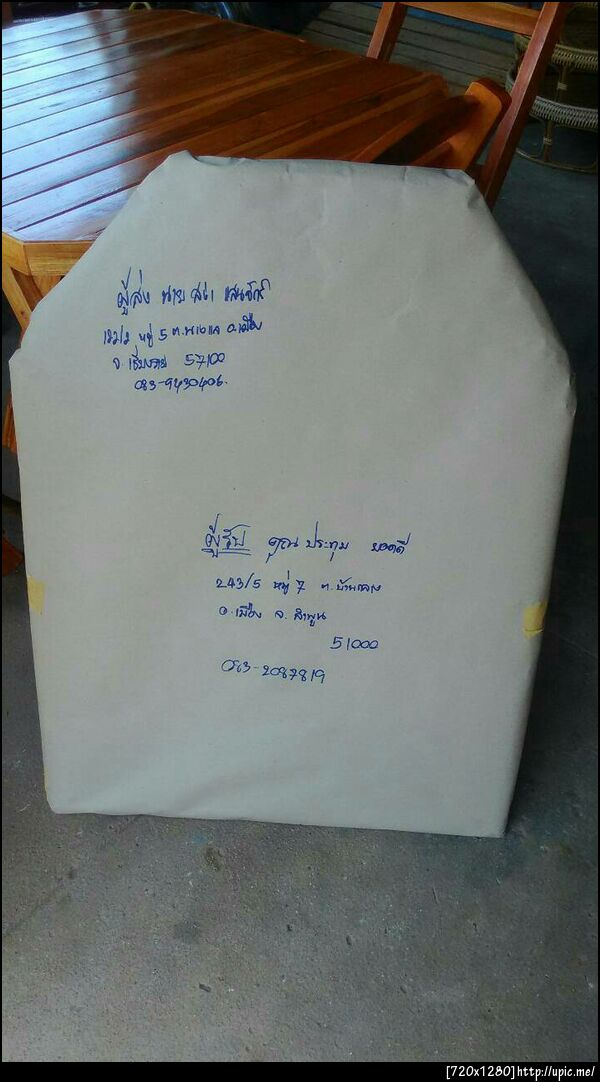 ผู้ส่ง นาย
หมู่ 5 ต.นางแล อ.เมือง
จ.เชียงราย 57100
083-9430406.
ผู้รับ คุณ ประทุม ยอดดี
243/5 หมู่ 7 ต.บ้านกลาง
อ.เมือง จ.ลำพูน
51000
083-2087819
[720x1280]http://upic.me/